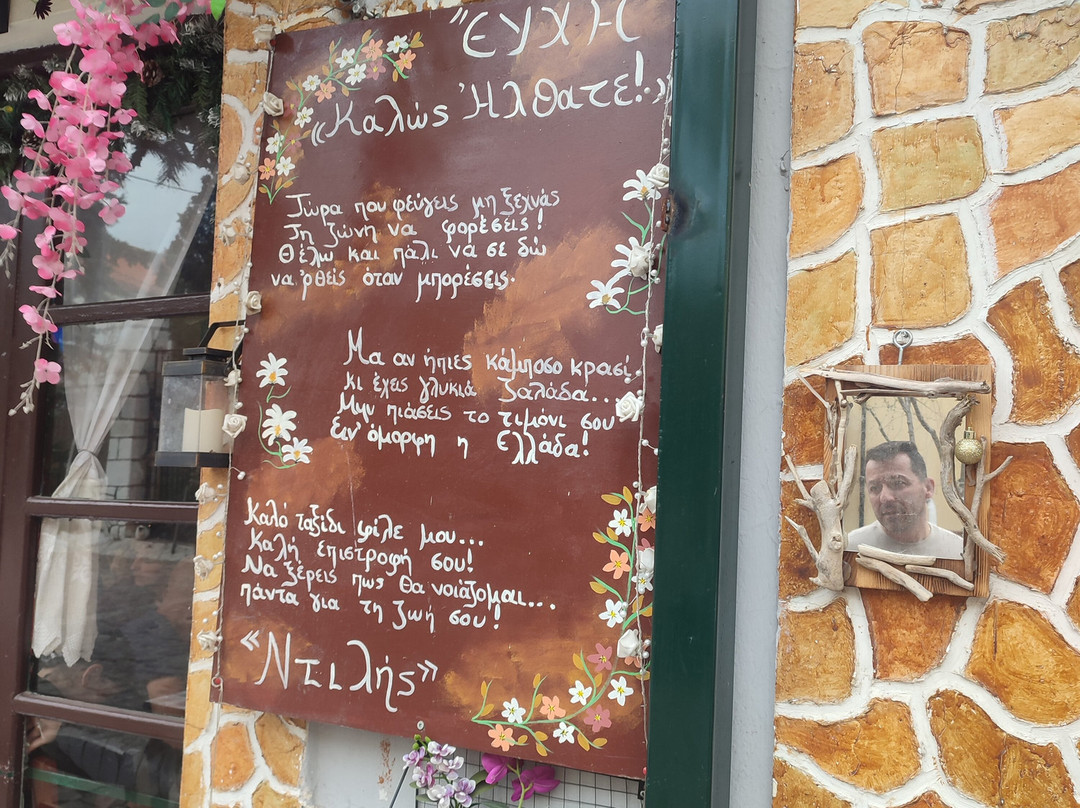 "ΕΥΧΗ
«Καλώς Ήλθατε!»
Τώρα που φεύγεις μη ξεχνάς
Τη ζώνη να φορέσεις!
Θέλω και πάλι να σε δώ
να 'ρθείς όταν μπορέσεις.
Μα αν ήπιες κάμποσο κρασί..
κι έχεις γλυκιά ζαλάδα...
Μην πιάσεις το τιμόνι σου
Ειν' όμορφη η Ελλάδα!
Καλό ταξίδι φίλε μου...
Καλή επιστροφή σου!
Να ξέρεις πως θα νοιάζομαι...
πάντα για τη ζωή σου!
«Ντιλής»